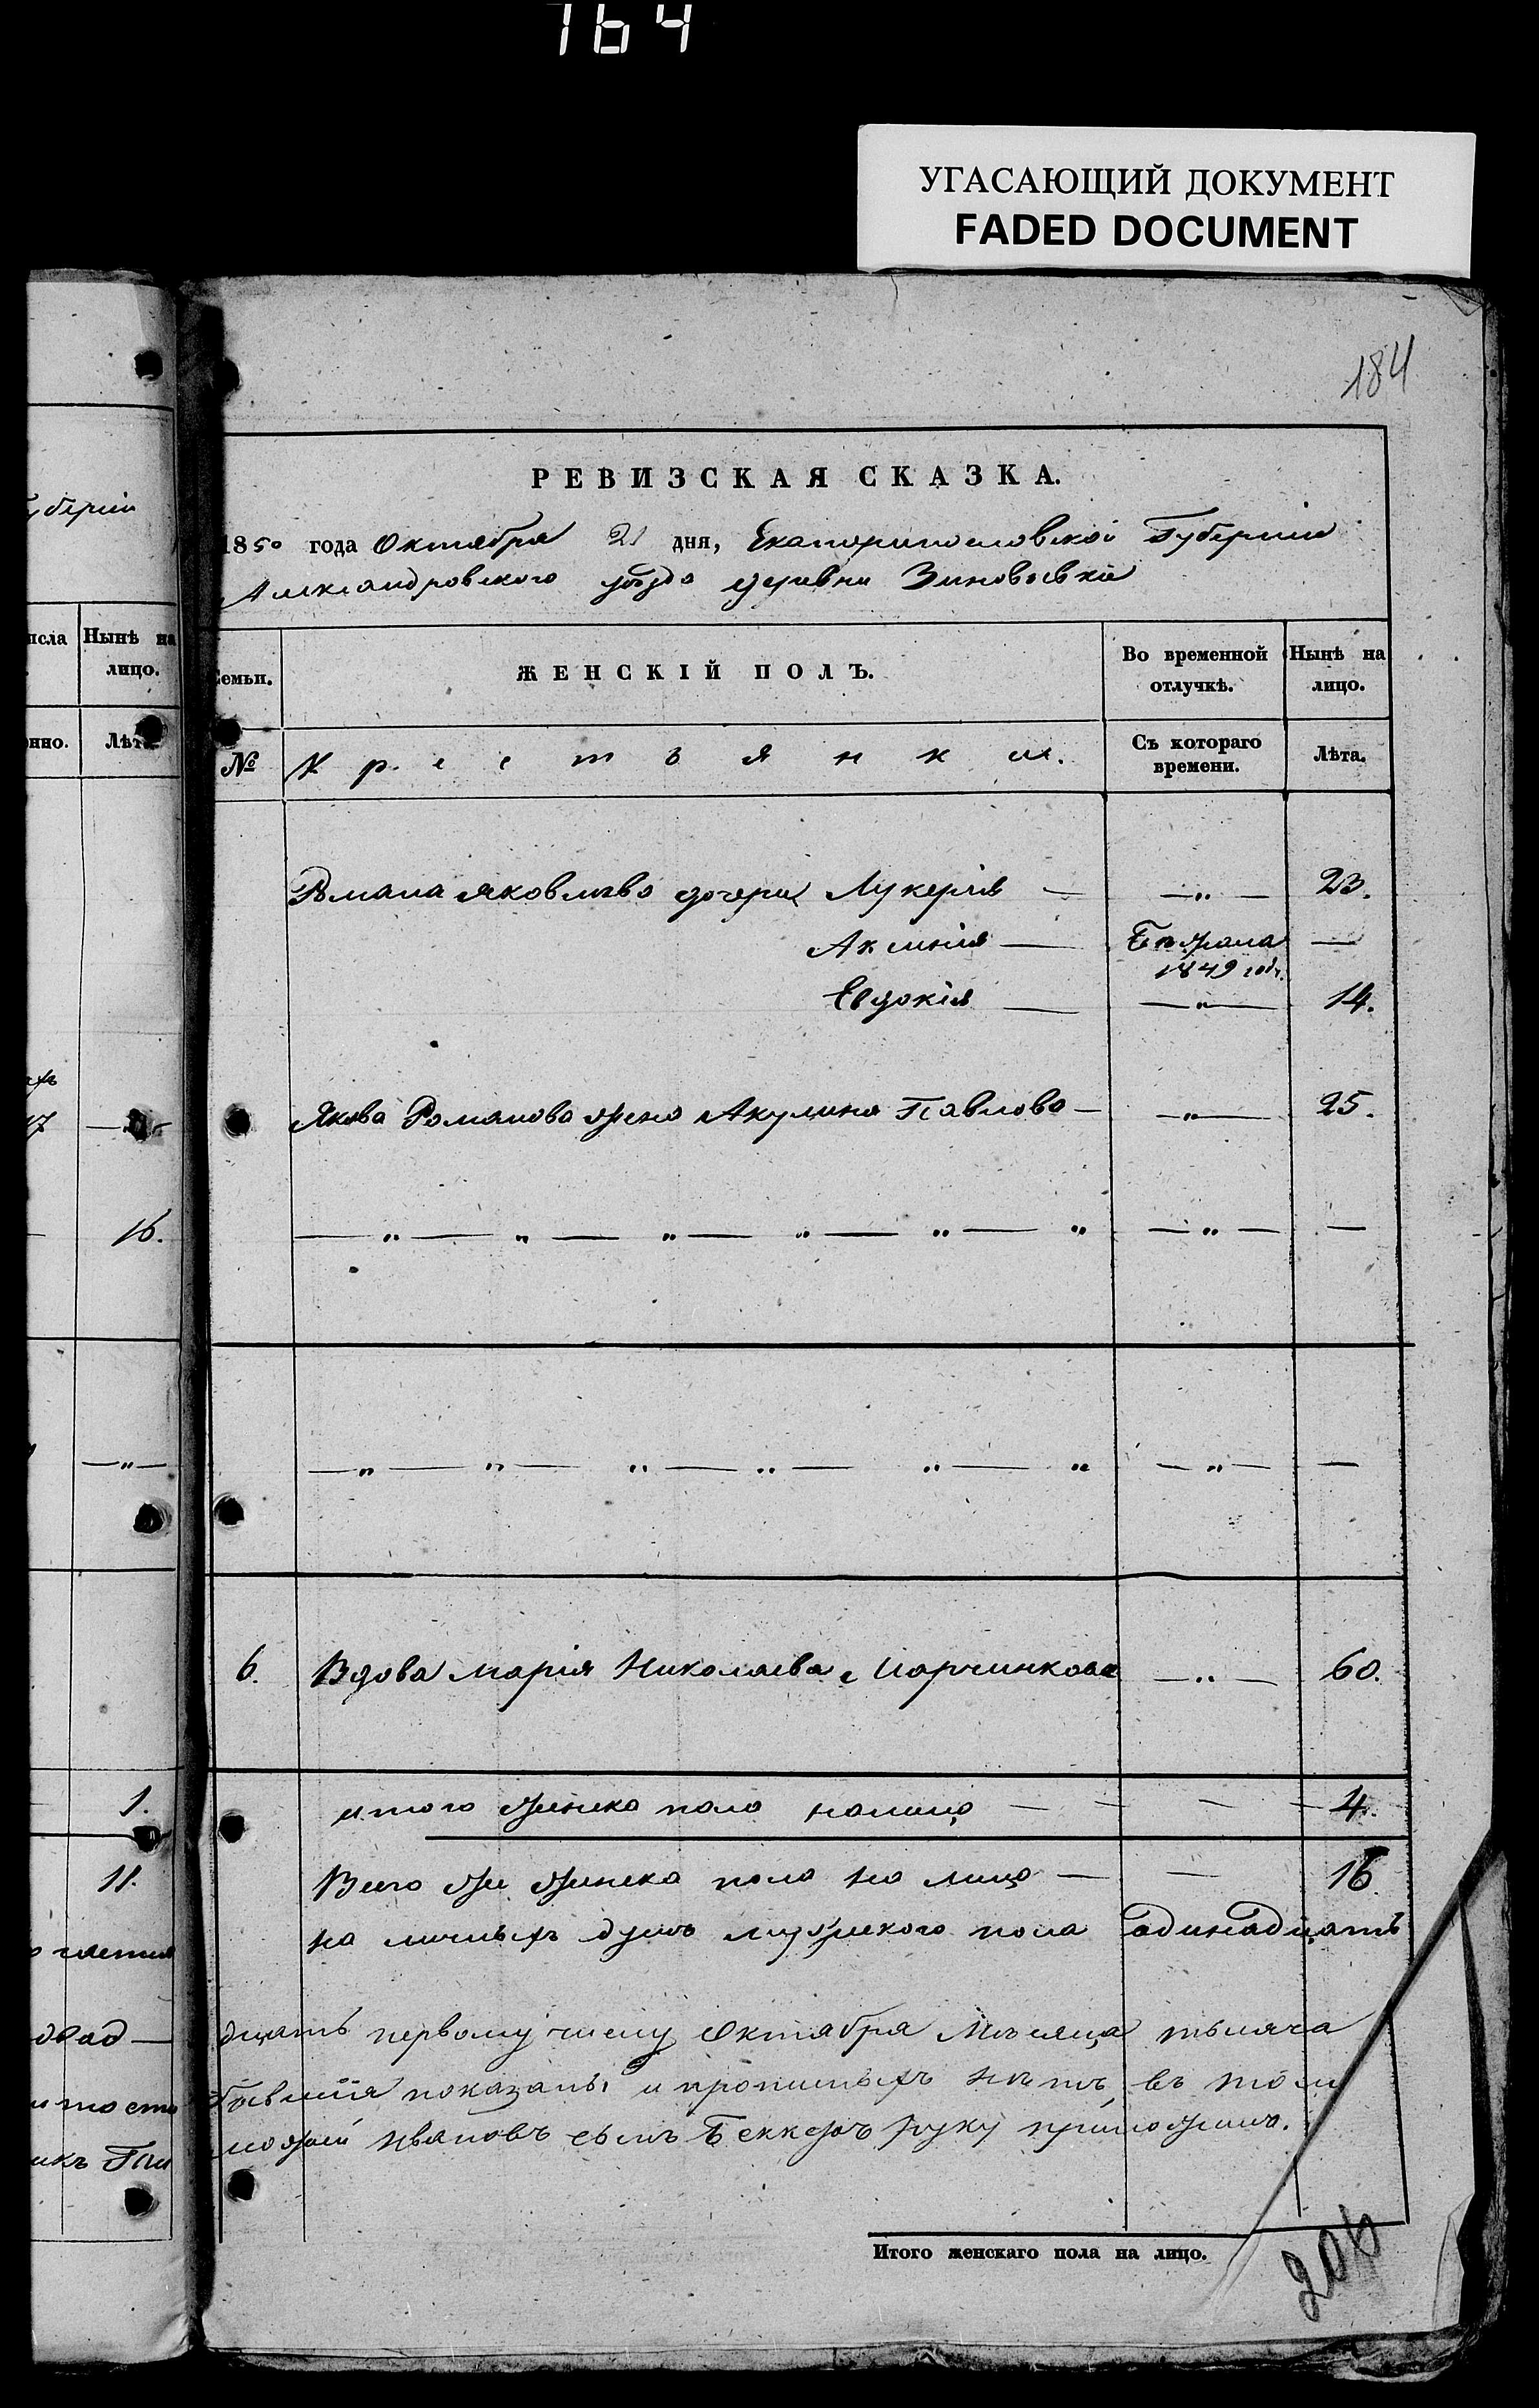 164
УГАСАЮЩИЙ ДОКУМЕНТ
FADED DOCUMENT
184
РЕВИЗСКАЯ СКАЗКА.
1850 года Октября 21 дня, Екатеринославской Губернии
Александровского уѣзда деревни Зиновьевки
Семьи.
ЖЕНСКІЙ ПОЛЪ.
Во временной отлучкѣ.
Нынѣ на лицо.
№
Крестьянки.
Съ котораго времени.
Лѣта.
Романа Яковлева дочери Лукерия — — „ — 23.
Аксиния — Бежала 1849 года. —
Евдокія — — „ — 14.
Якова Романова жена Акулина Павлова — — „ — 25.
— „ — „ — „ — „ — „ — „ — „ — —
— „ — „ — „ — „ — „ — „ — „ — —
6. Вдова Марія Николаева Марчинкова — „ — 60.
итого женска пола налицо — — — — 4.
Всего же женска пола на лицо — — 16
на личныхъ душъ мужского пола одинадцать
дцать первому числу Октября Мѣсяца тысяча
бывшія показаны и прописныхъ нѣтъ, въ том
Ивановъ сынъ руку приложилъ.
Итого женскаго пола на лицо.
206
уберніи
исла
Нынѣ на лицо.
нно.
Лѣта.
47
16.
— „ —
1.
11.
двад —
икъ